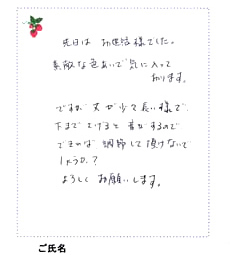 先日は お世話様でした。
素敵な色あいで気に入って
おります。
ですが 丈が少々長い様で
下まで下げると 音がするので
できれば 調節して頂けないで
しょうか?
よろしく お願いします。
ご氏名